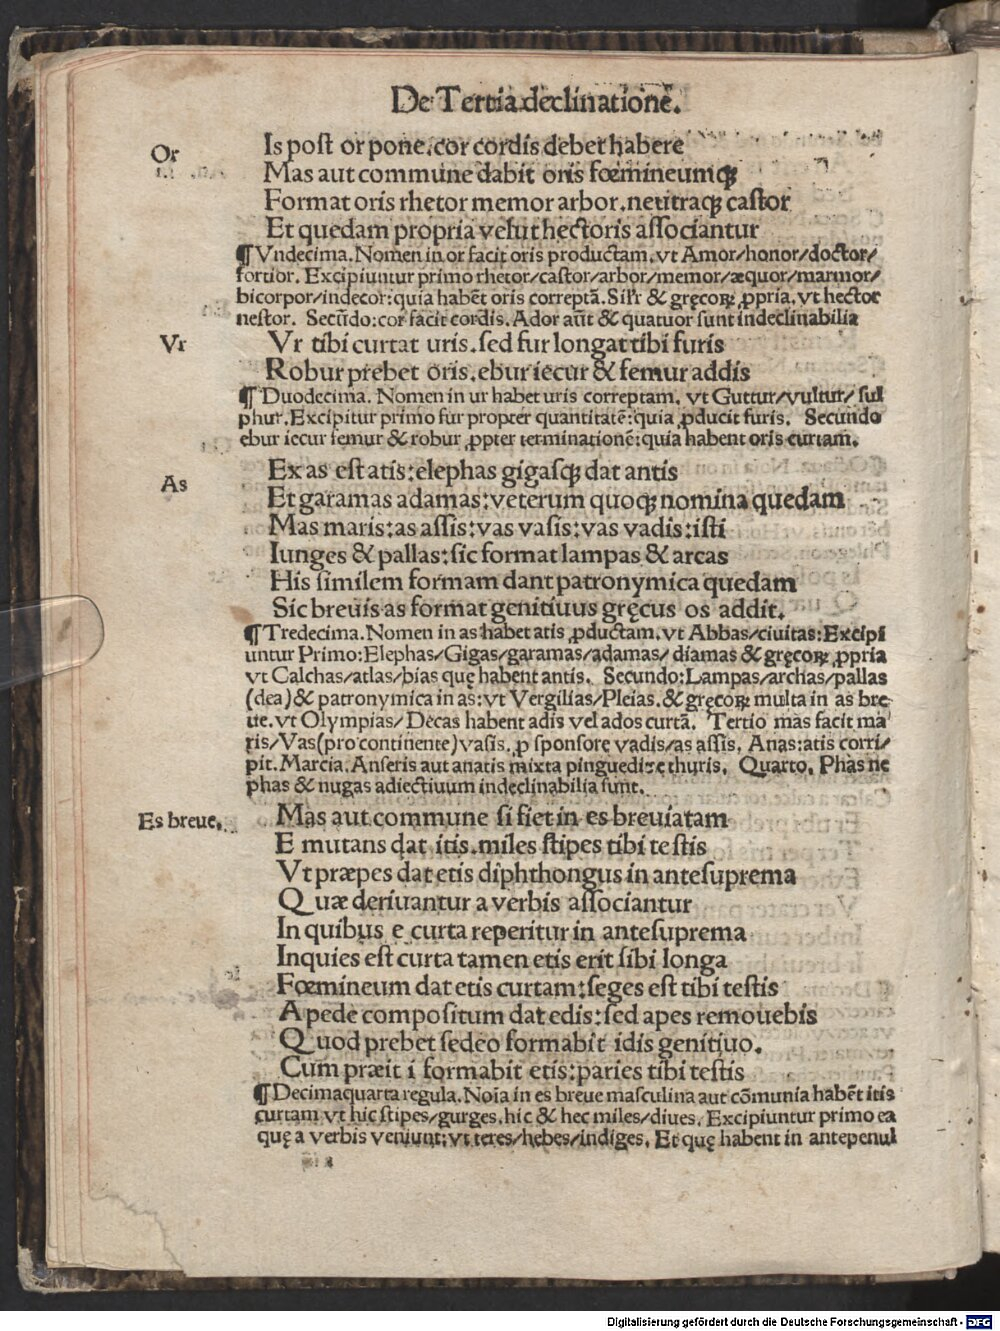 De Tertia declinatione.
Or
Is post or pone. cor cordis debet habere
Mas aut commune dabit oris fœmineumqꝫ
Format oris rhetor memor arbor. neutraqꝫ castor
Et quedam propria velut hectoris associantur
¶ Vndecima. Nomen in or facit oris productam. vt Amor/honor/doctor/
fortior. Excipiuntur primo rhetor/castor/arbor/memor/æquor/marmor/
bicorpor/indecor: quia habēt oris correptā. Silr̄ & gręcoꝝ ꝓpria. vt hector
nestor. Secūdo: cor facit cordis. Ador aūt & quatuor sunt indeclinabilia
Vr
Vr tibi curtat uris. sed fur longat tibi furis
Robur prebet oris. ebur iecur & femur addis
¶ Duodecima. Nomen in ur habet uris correptam. vt Guttur/vultur/ sul
phur. Excipitur primo fur propter quantitatē: quia ꝓducit furis. Secundo
ebur iecur femur & robur ꝓpter terminationē: quia habent oris curtam.
As
Ex as est atis: elephas gigasqꝫ dat antis
Et garamas adamas: veterum quoqꝫ nomina quedam
Mas maris: as assis: vas vasis: vas vadis: isti
Iunges & pallas: sic format lampas & arcas
His similem formam dant patronymica quedam
Sic breuis as format genitiuus gręcus os addit.
¶ Tredecima. Nomen in as habet atis ꝓductam. vt Abbas/ciuitas: Excipi
untur Primo: Elephas/Gigas/garamas/adamas/ diamas & gręcoꝝ ꝓpria
vt Calchas/atlas/bias quę habent antis. Secundo: Lampas/archas/pallas
(dea) & patronymica in as: vt Vergilias/Pleias. & gręcoꝝ multa in as bre-
ue. vt Olympias/Decas habent adis vel ados curtā. Tertio mas facit ma
ris/Vas(pro continente)vasis. ꝓ sponsore vadis/as assis. Anas: atis corri/
pit. Marcia. Anseris aut anatis mixta pinguedine thuris. Quarto. Phas ne
phas & nugas adiectiuum indeclinabilia sunt.
Es breue.
Mas aut commune si fiet in es breuiatam
E mutans dat itis. miles stipes tibi testis
Vt præpes dat etis diphthongus in antesuprema
Quæ deriuantur a verbis associantur
In quibus e curta reperitur in antesuprema
Inquies est curta tamen etis erit sibi longa
Fœmineum dat etis curtam: seges est tibi testis
A pede compositum dat edis: sed apes remouebis
Quod prebet sedeo formabit idis genitiuo.
Cum præit i formabit etis: paries tibi testis
¶ Decimaquarta regula. Noīa in es breue masculina aut cōmunia habēt itis
curtam vt hic stipes/gurges. hic & hec miles/diues. Excipiuntur primo ea
quę a verbis veniunt: vt teres/hebes/indiges. Et quę habent in antepenul
Digitalisierung gefördert durch die Deutsche Forschungsgemeinschaft - DFG